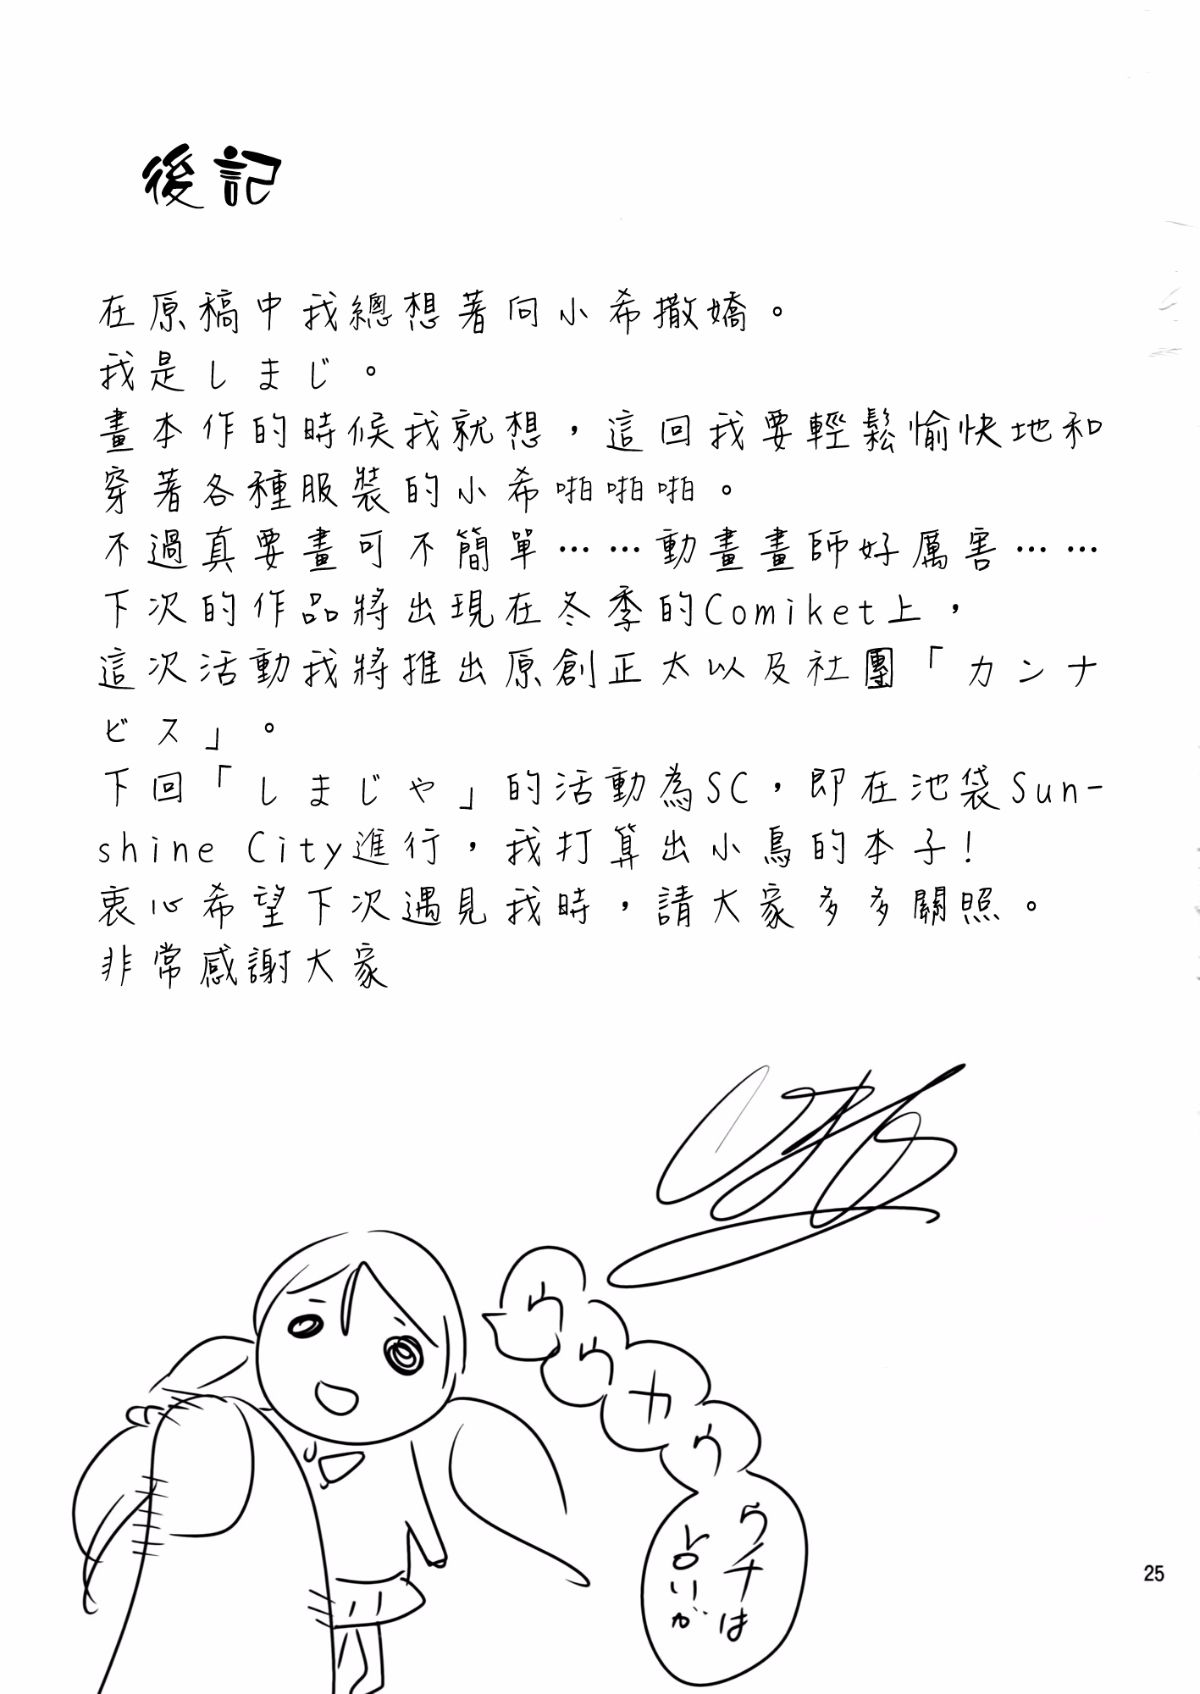 後記
在原稿中我總想著向小希撒嬌。
我是しまじ。
畫本作的時候我就想，這回我要輕鬆愉快地和
穿著各種服裝的小希啪啪啪。
不過真要畫可不簡單……動畫畫師好厲害……
下次的作品將出現在冬季的Comiket上，
這次活動我將推出原創正太以及社團「カンナ
ビス」。
下回「しまじや」的活動為SC，即在池袋Sun-
shine City進行，我打算出小鳥的本子!
衷心希望下次遇見我時，請大家多多關照。
非常感謝大家
ウ
ウ
カ
ウ
ウチは
25